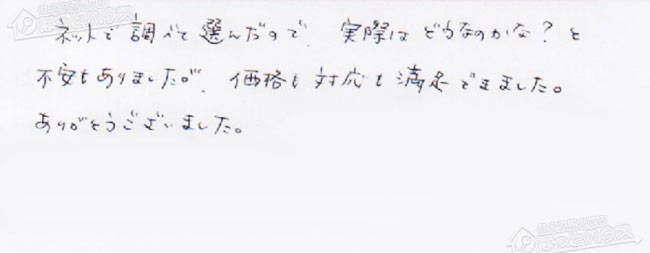 ネットで調べて選んだので、実際はどうなのかな？と
不安もありましたが、価格も対応も満足できました。
ありがとうございました。